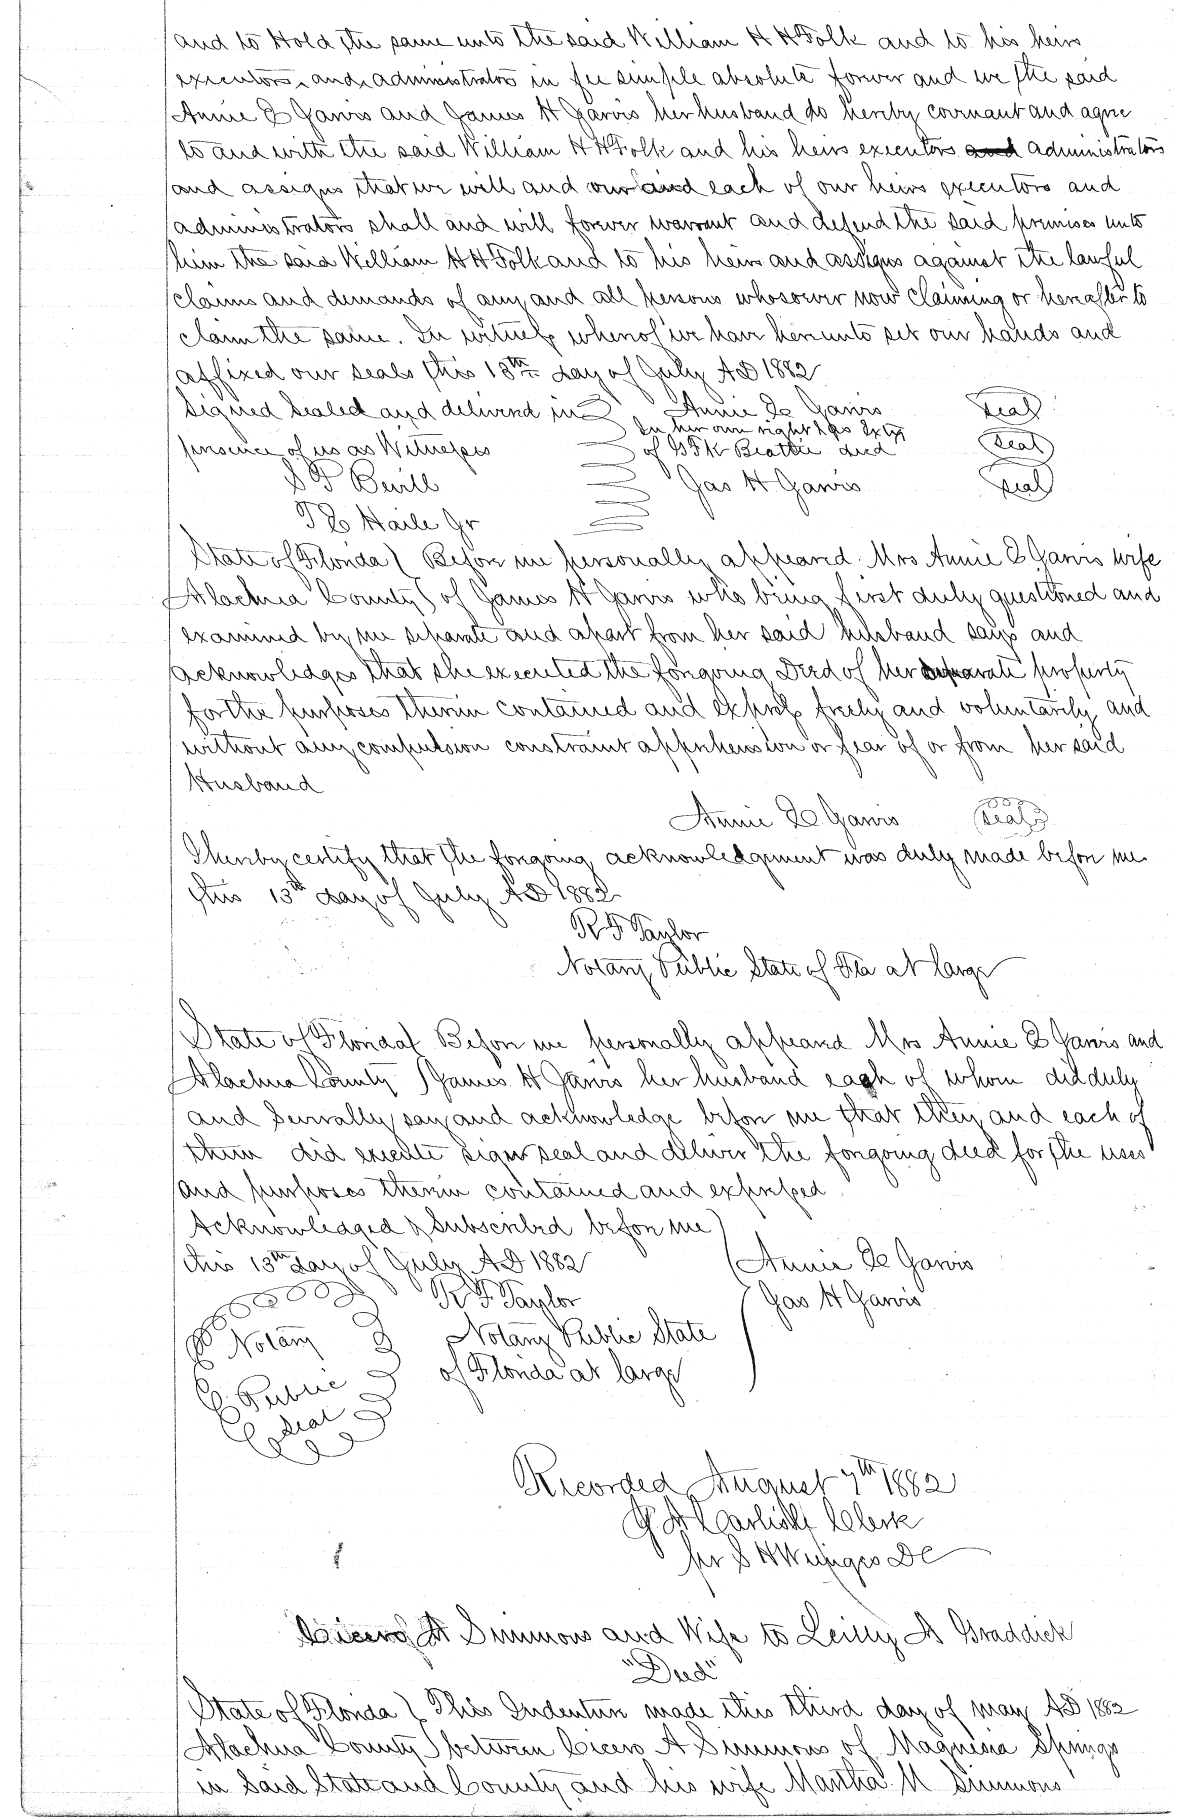 and to Hold the same unto the said William H H Folk and to his heirs
executors, and, administrators in fee simple absolute forever and we the said
Annie E Jarvis and James H Jarvis her husband do hereby covenant and agree
to and with the said William H H Folk and his heirs executors and administrators
and assigns that we will and our and each of our heirs executors and
administrators shall and will forever warrant and defend the said premises unto
him the said William H H Folk and to his heirs and assigns against the lawful
claims and demands of any and all persons whosoever now claiming or hereafter to
claim the same. In witness whereof we have hereunto set our hands and
affixed our seals this 13th day of July AD 1882
Signed Sealed and delivered in Annie E Jarvis Seal
In her own right & as Extx
presence of us as Witnesses of G F K Beattie decd Seal
S F Bevill Jas H Jarvis Seal
T E Haile Jr
State of Florida ( Before me personally appeared Mrs Annie E Jarvis wife
Alachua County ) of James H Jarvis who being first duly questioned and
examined by me separate and apart from her said husband says and
acknowledges that she executed the foregoing Deed of her separate property
for the purposes therein contained and express freely and voluntarily and
without any compulsion constraint apprehension or fear of or from her said
Husband
Annie E Jarvis Seal
I hereby certify that the foregoing acknowledgement was duly made before me
this 13th day of July AD 1882
R F Taylor
Notary Public State of Fla at large
State of Florida ( Before me personally appeared Mrs Annie E Jarvis and
Alachua County ) James H Jarvis her husband each of whom did duly
and Severally say and acknowledge before me that they and each of
them did execute sign seal and deliver the foregoing deed for the uses
and purposes therein contained and expressed
Acknowledged & Subscribed before me
this 13th day of July AD 1882 Annie E Jarvis
R F Taylor Jas H Jarvis
Notary Notary Public State
Public of Florida at large
Seal
Recorded August 7th 1882
J A Carlisle Clerk
per S H Wienges DC
Cicero A Simmons and Wife to Leilly A Graddick
"Deed"
State of Florida ( This Indenture made this third day of May AD 1882
Alachua County ) between Cicero A Simmons of Magnesia Springs
in Said State and County and his wife Martha M Simmons